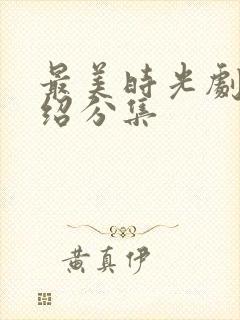 最美時光劇
紹分集
黄真伊